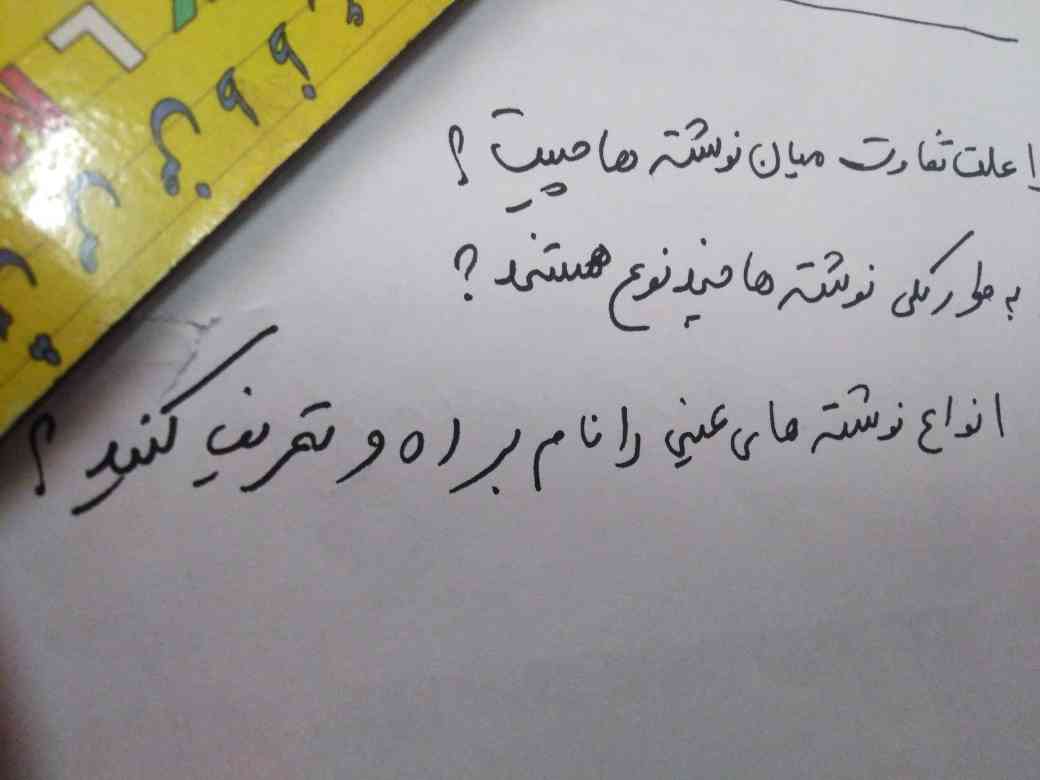 ا علت تفاوت میان نوشته ها چیست ؟
به طور کلی نوشته ها چند نوع هستند ؟
انواع نوشته های عینی را نام بر اه و تعریف کنید ؟